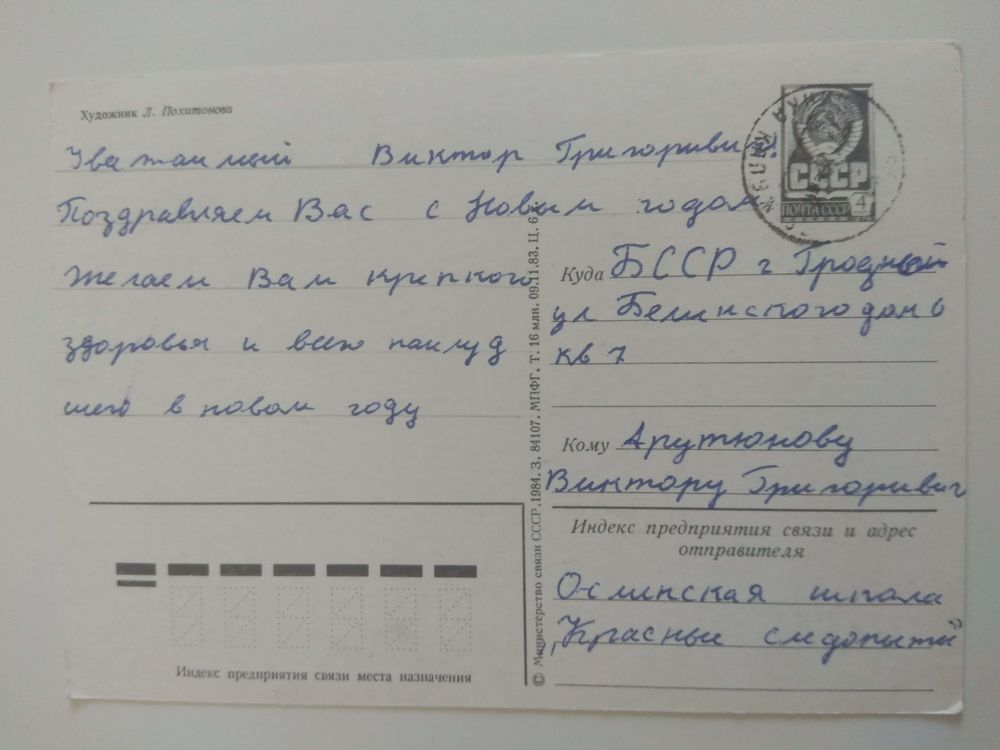 Художник Л. Похитонова
Уважаимый Виктор Григоривич
Поздравляем Вас с Новым годом
желаем Вам крепкого
здоровья и всего наилуд
шего в новом году
СССР
ПОЧТА СССР 4
Куда БССР г Гродно
ул Белинского дом 6
кв 7
Кому Арутюнову
Виктору Григоривич
Индекс предприятия связи и адрес
отправителя
Осминская школа
„Красные следопыты"
Индекс предприятия связи места назначения
© Министерство связи СССР. 1984. З. 84107. МПФГ. Т. 16 млн. 09.11.83. Ц. 6